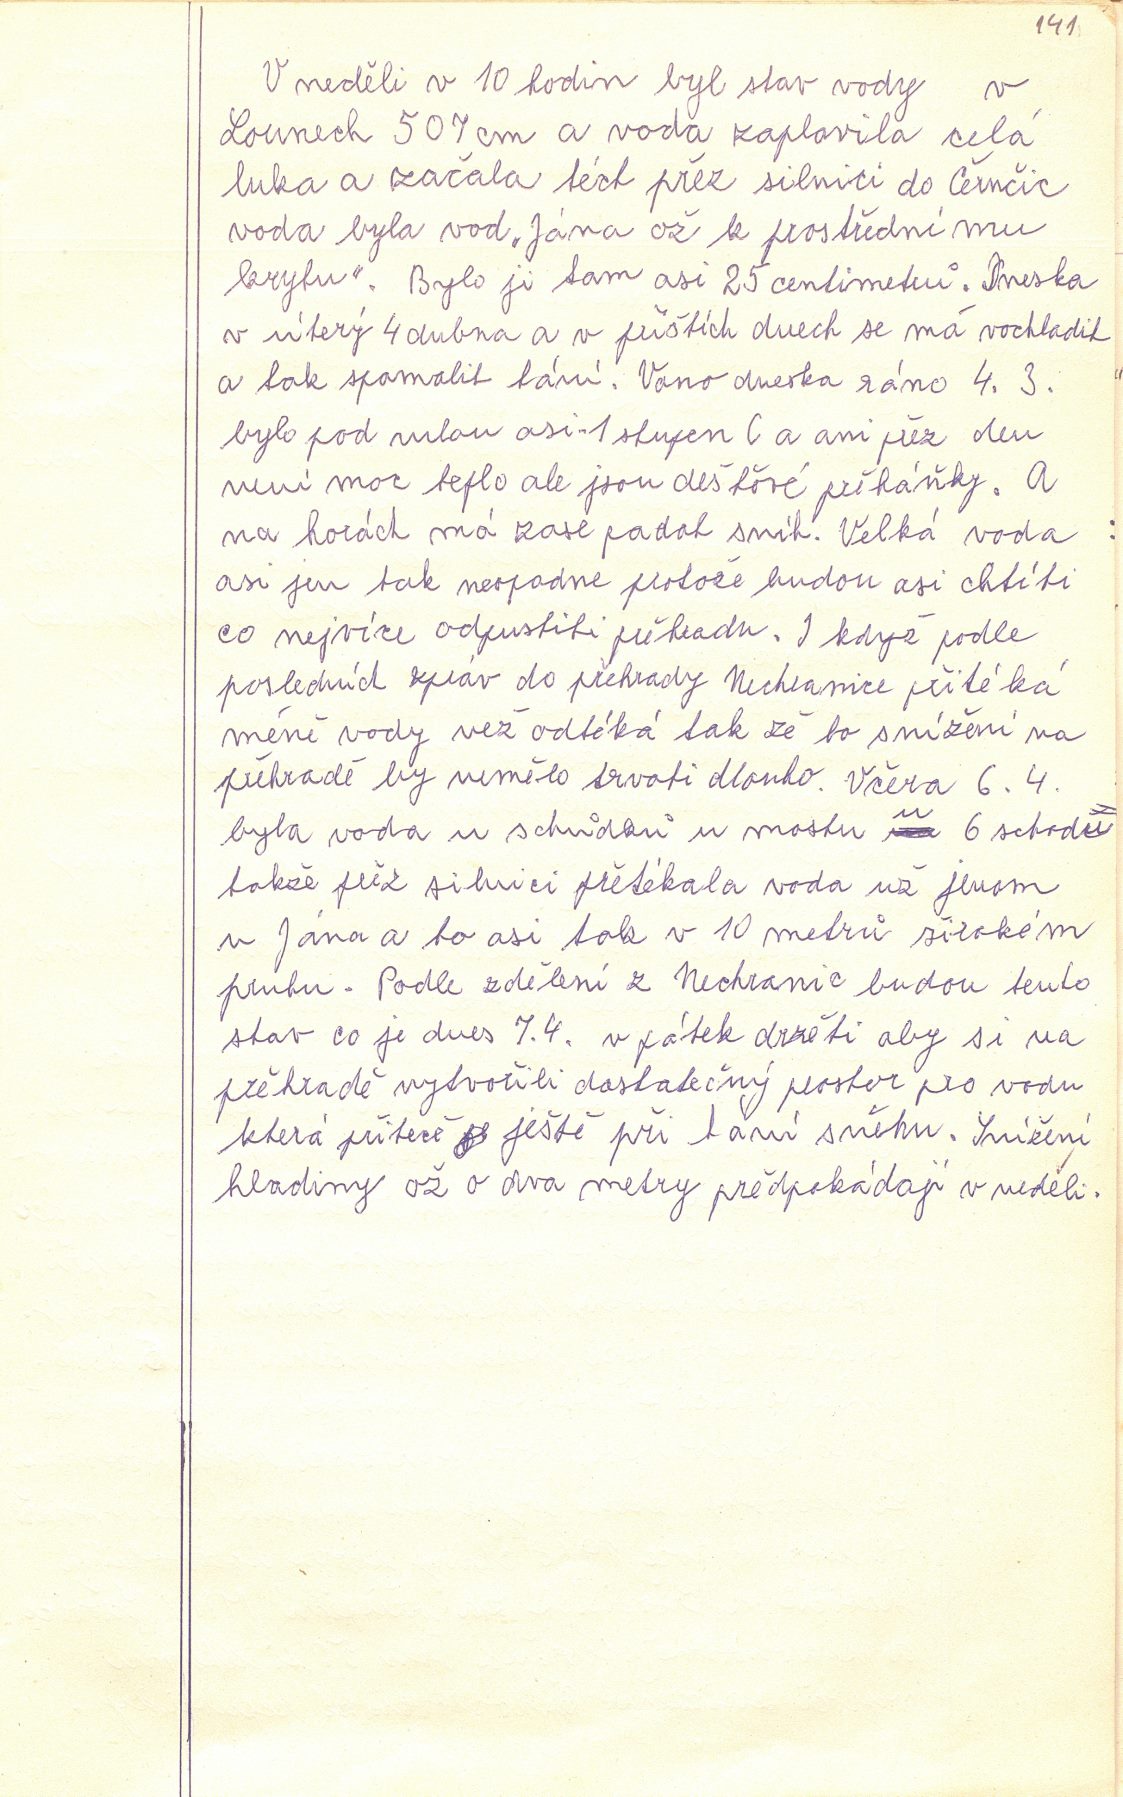 141
V neděli v 10 hodin byl stav vody v
Lounech 507 cm a voda zaplavila celá
luka a začala téct přez silnici do Černčic
voda byla vod „Jána až k prostřednímu
krytu“. Bylo jí tam asi 25 centimetrů. Dneska
v úterý 4 dubna a v příštích dnech se má vochladit
a tak spomalit tání. Vono dneska ráno 4. 3.
bylo pod nulou asi -1 stupen C a ani přez den
neni moc teplo ale jsou dešťové přeháňky. A
na horách má zase padat sníh. Velká voda
asi jen tak neopadne protože budou asi chtíti
co nejvíce odpustiti přehradu. I když podle
posledních zpráv do přehrady Nechranice přitéká
méně vody než odtéká tak že to snížení na
přehradě by nemělo trvati dlouho. Včera 6. 4.
byla voda u schůdků u mostu u 6 schodu
takže přez silnici přetékala voda už jenom
u Jána a to asi tak v 10 metrů širokém
pruhu. Podle zdělení z Nechranic budou tento
stav co je dnes 7.4. v pátek držěti aby si na
přehradě vytvořili dostatečný prostor pro vodu
která přiteče ještě při tání sněhu. Snížení
hladiny až o dva metry předpokádají v neděli.